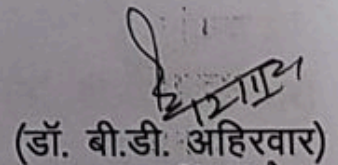 (डॉ. बी.डी. अहिरवार)